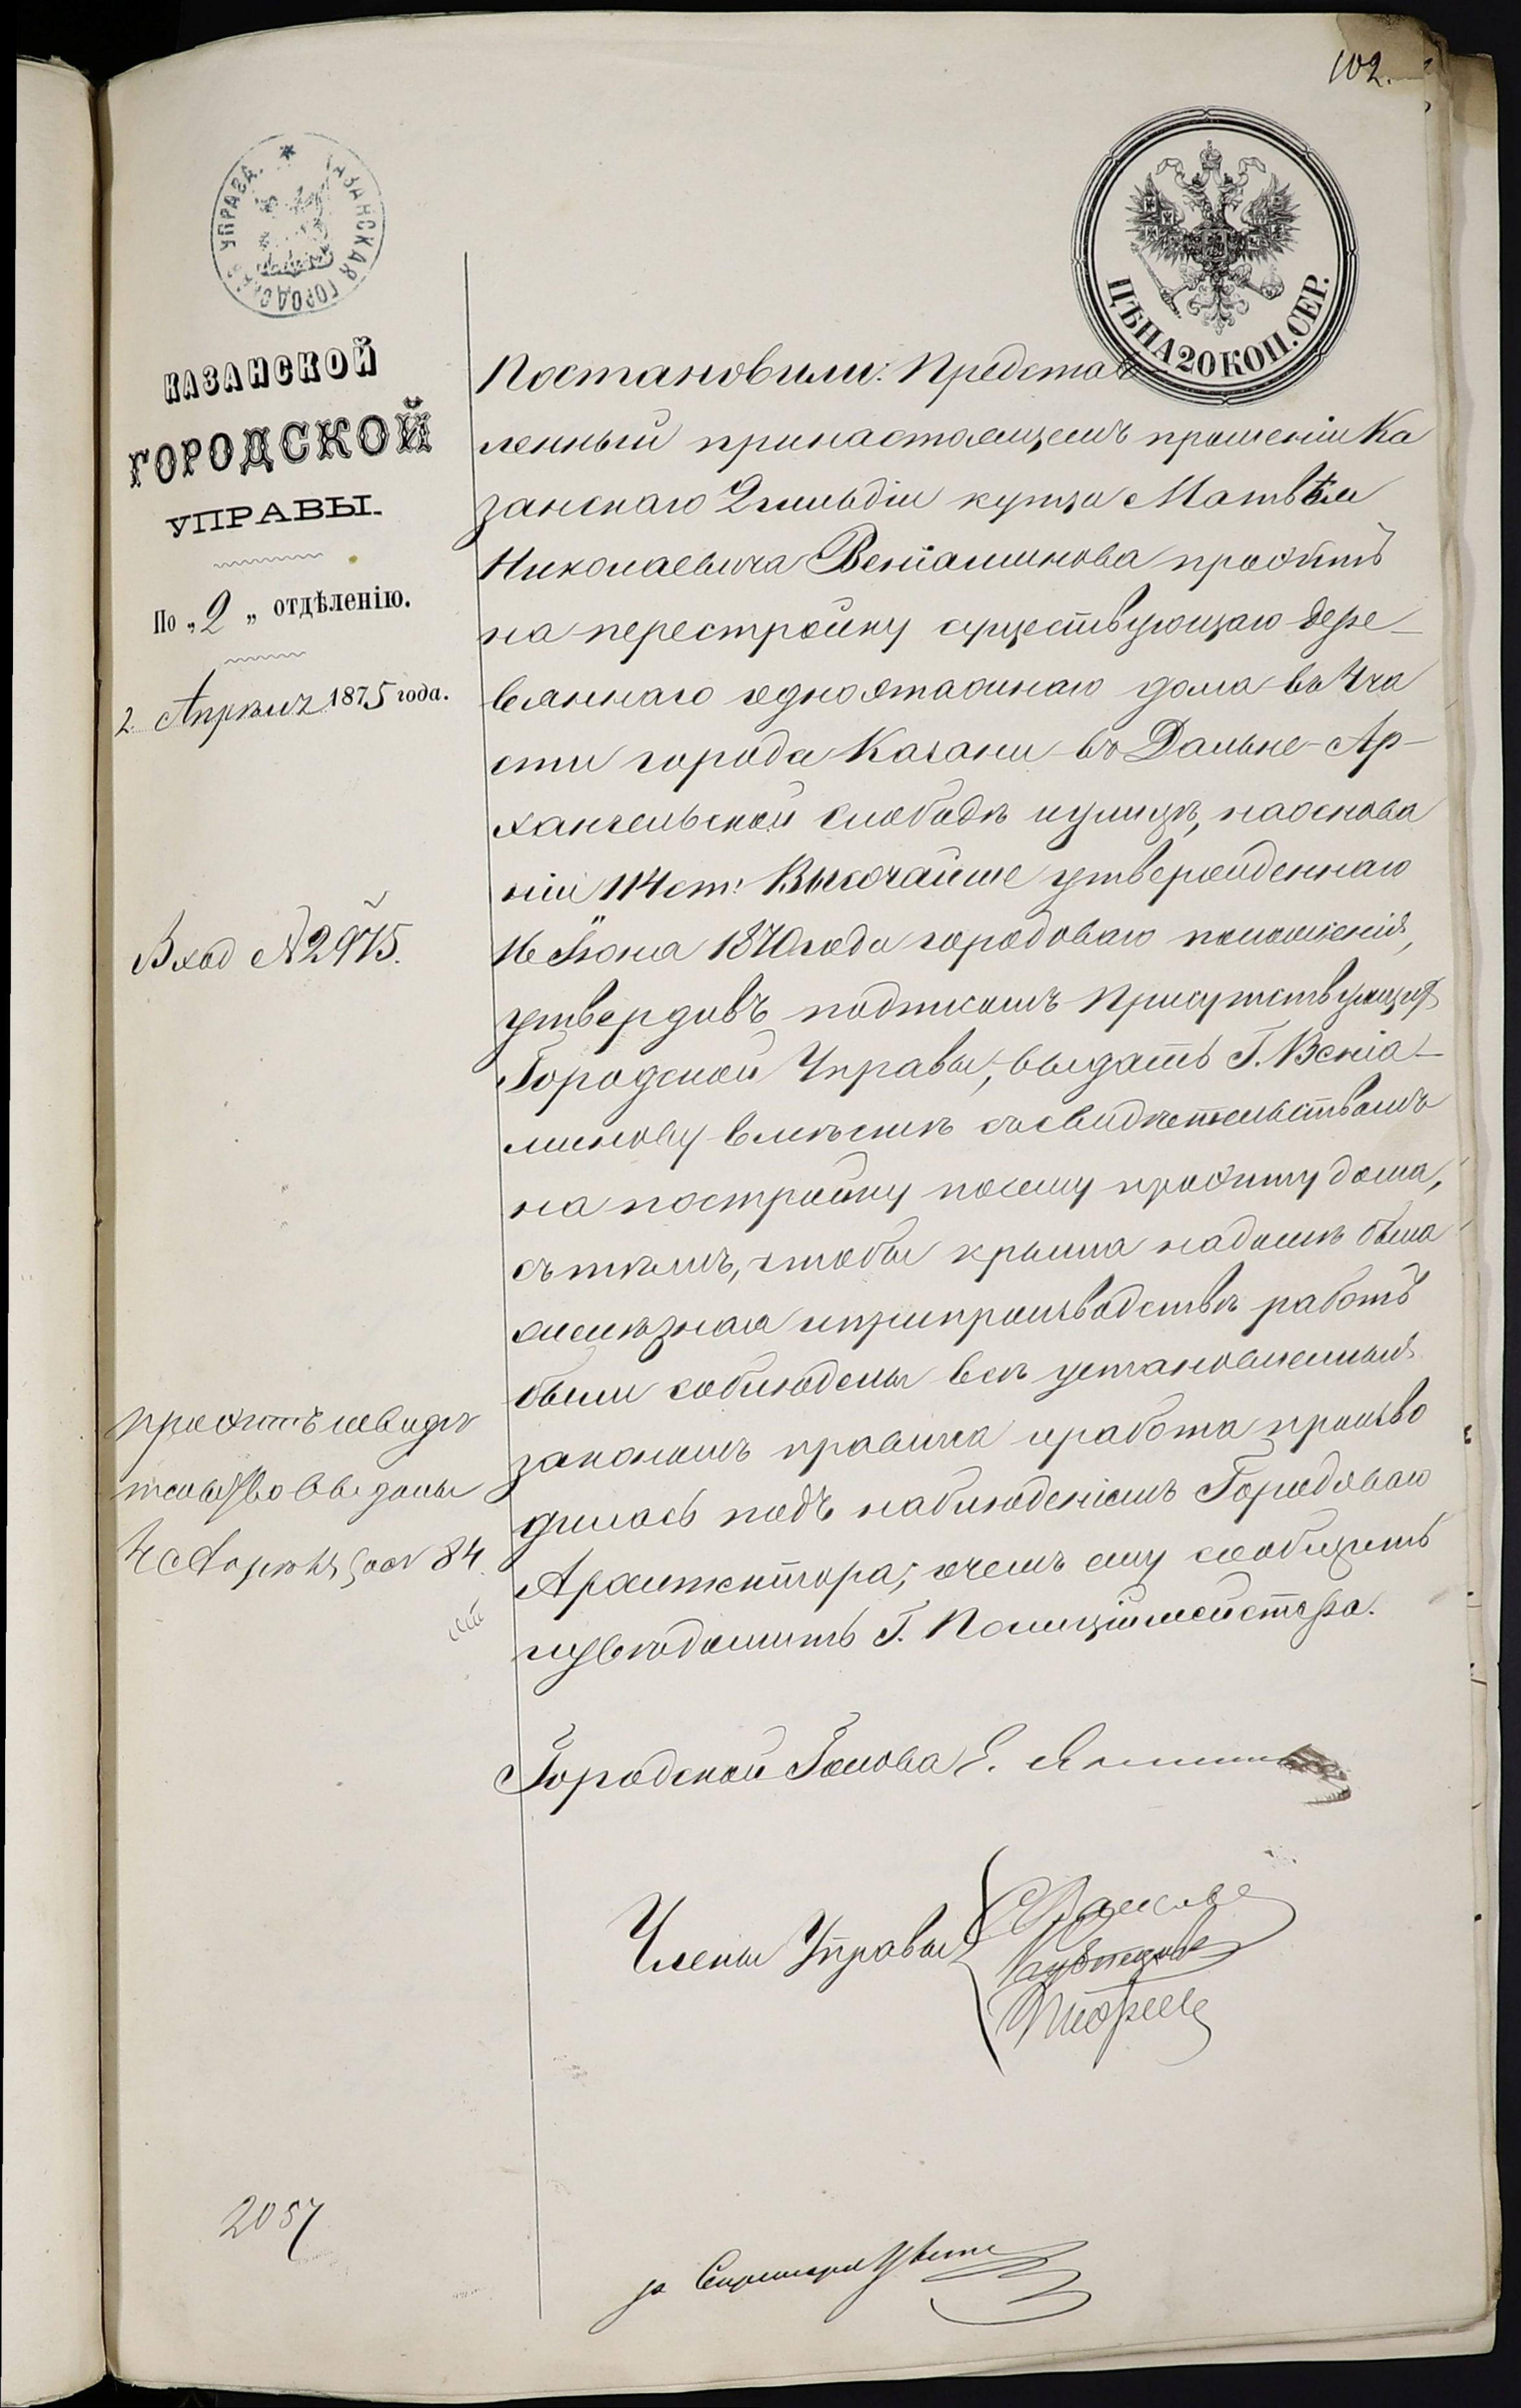 102.
КАЗАНСКАЯ ГОРОДСКАЯ УПРАВА.
ЦѢНА 20 КОП. СЕР.
КАЗАНСКОЙ
ГОРОДСКОЙ
УПРАВЫ.
По „2„ отдѣленію.
2. Апрѣля 1875 года.
Вход № 2975.
Постановили: Представ
ленный принастоящемъ прошеніи Ка
занскаго 2 гильдіи купца Матвѣя
Николаевича Веніаминова проэктъ
на перестройку существующаго дере–
вяннаго одноэтажнаго дома въ 4 ча
сти города Казани въ Дальне-Ар–
хангельской слободѣ и улицѣ, наоснова
ніи 114 ст. Высочайше утвержденнаго
16 Іюня 1870 года городоваго положенія,
утвердивъ подписомъ Присутствующихъ
Городской Управы, выдать Г. Веніа–
минову вмѣстѣ съ свидѣтельствомъ
на постройку посему проэкту дома,
съ тѣмъ, чтобы крыша надомѣ была
желѣзная иприпроизводствѣ работъ
были соблюдены всѣ установленныя
закономъ правила иработа произво
дилась подъ наблюденіемъ Городоваго
Архитектора; очемъ ему сообщить
иувѣдомить Г. Полиціймейстера.
проэктъ исвидѣ
тельство выданы
4 Апрѣля за № 84.
Городской Голова Е.
Члены Управы
2057
за Секретаря